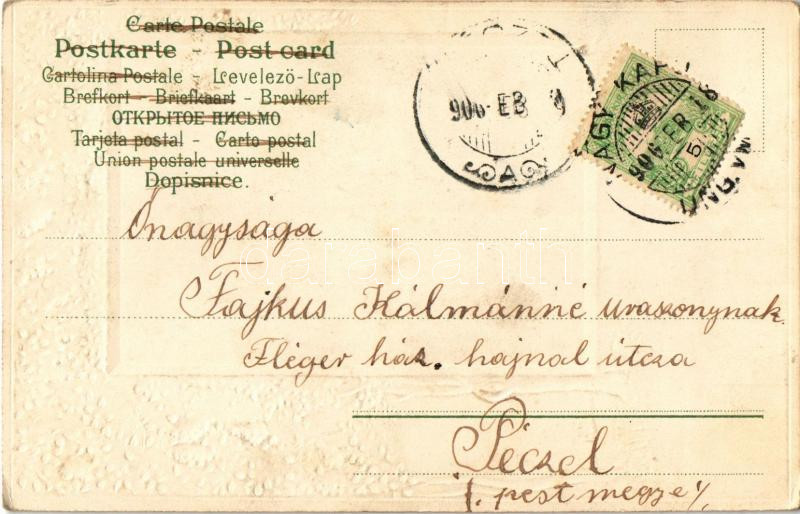 Carte Postale
Postkarte - Post-card
Cartolina Postale - Levelező-Lap
Brefkort - Briefkaart - Brevkort
ОТКРЫТОЕ ПИСЬМО
Tarjeta postal - Carto postal
Union postale universelle
Dopisnice.
906 FEB
NAGY KAP
906 FEB
Önagysága
Fajkus Kálmánné uraszonynak
Fléger ház. hajnal útcza
Péczel
(. pest megye)
darabanth